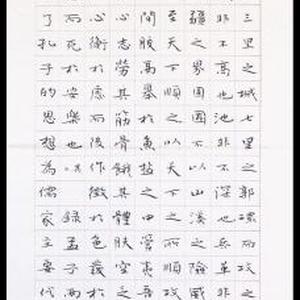 三里之城七里之郭環而攻之
非不高也池非不深也兵革非
疆之界固國不以山溪之險威
至天下順之以天下之所順攻
間膠鬲舉於魚鹽之中管夷吾
心志勞其筋骨餓其體膚空乏
心衡於慮而後作徵於色發於
而死於安樂也 錄孟子
了孔子的思想為儒家主要代